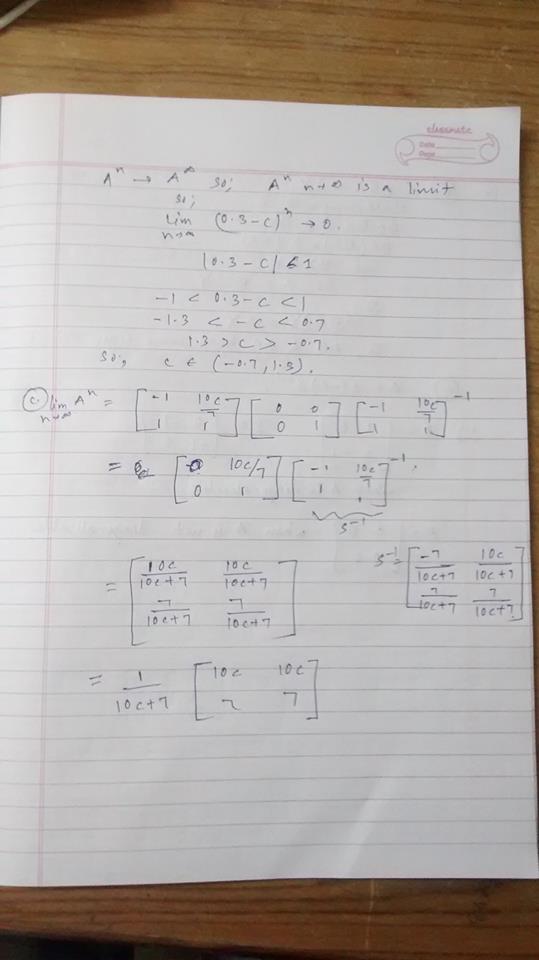 classmate
Date
Page
Aⁿ → A^∞ so; Aⁿ n→∞ is a limit
so;
lim n→∞ (0.3-c)ⁿ → 0.
|0.3-c| < 1
-1 < 0.3-c < 1
-1.3 < -c < 0.7
1.3 > c > -0.7.
so; c ∈ (-0.7, 1.3).
c. lim n→∞ Aⁿ = [-1 10c/7; 1 1] [0 0; 0 1] [-1 10c/7; 1 1]⁻¹
= [0 10c/7; 0 1] [-1 10c/7; 1 1]⁻¹.
S⁻¹
= [10c/10c+7 10c/10c+7; 7/10c+7 7/10c+7]
S⁻¹ = [-7/10c+7 10c/10c+7; 7/10c+7 7/10c+7]
= 1/10c+7 [10c 10c; 7 7]